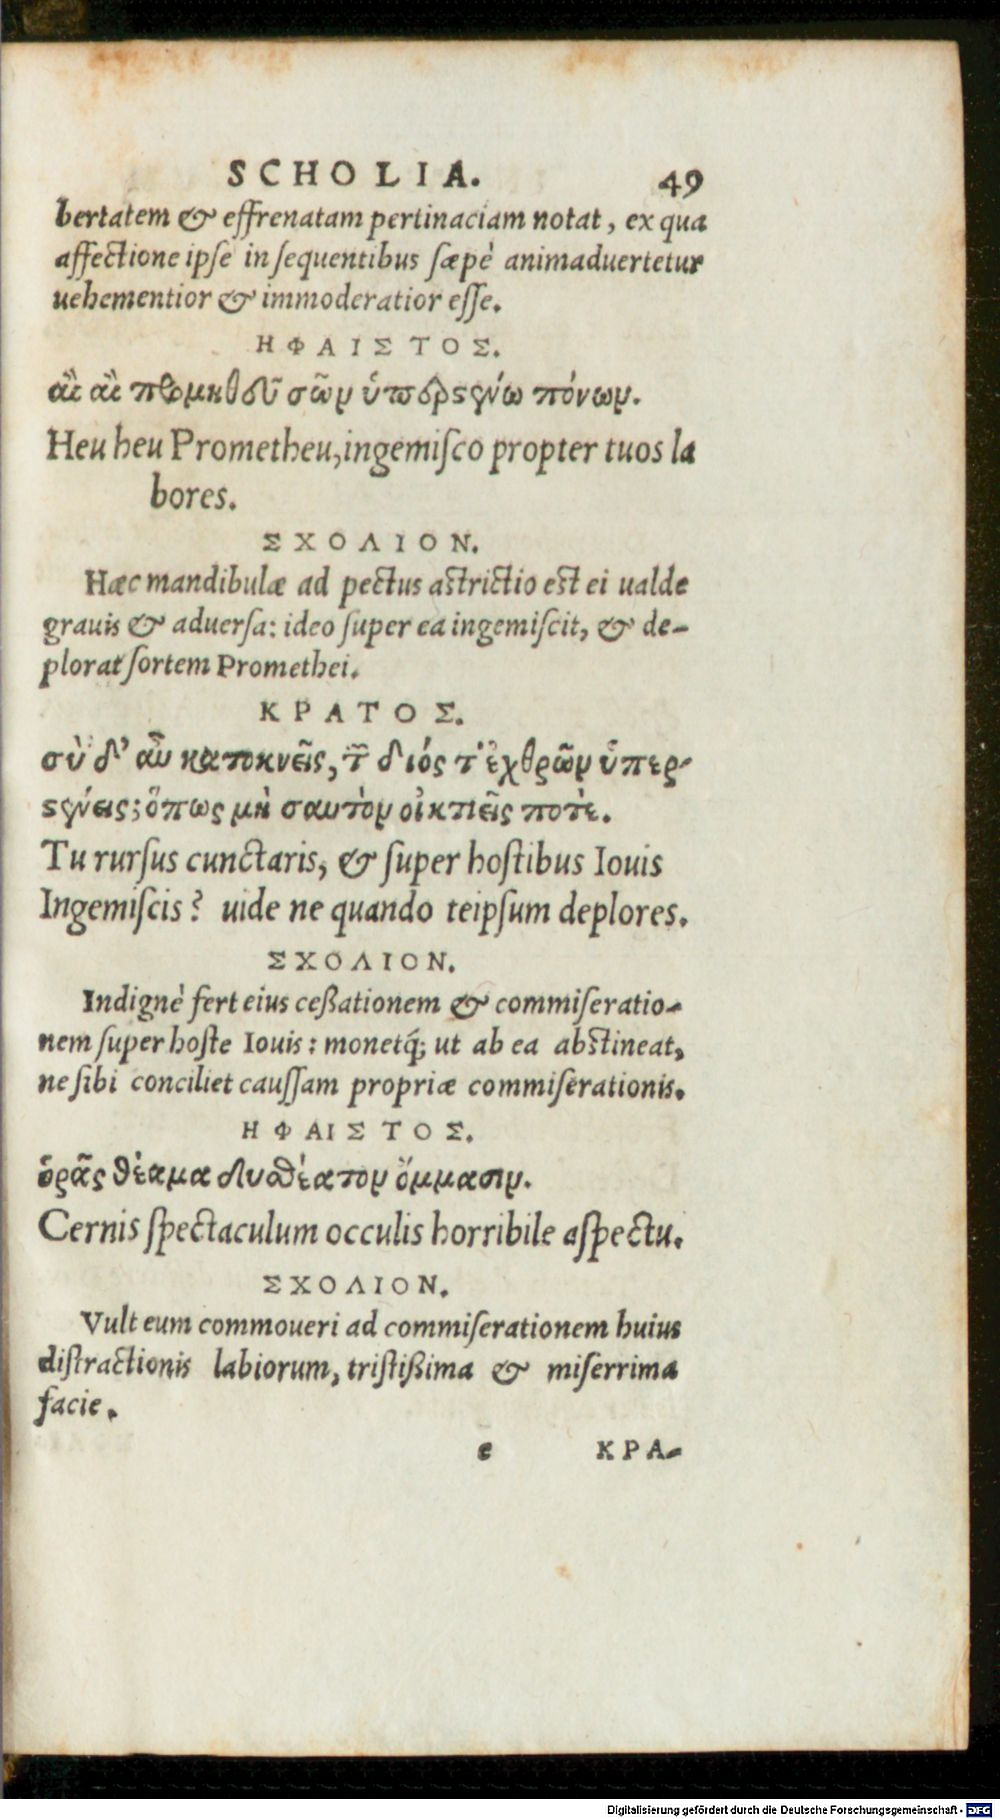 SCHOLIA. 49
bertatem & effrenatam pertinaciam notat, ex qua
affectione ipse in sequentibus sæpè animaduertetur
uehementior & immoderatior esse.
ΗΦΑΙΣΤΟΣ.
αἲ αἲ προμηθεῦ σῶν ὑπερστένω πόνων.
Heu heu Prometheu, ingemisco propter tuos la
bores.
ΣΧΟΛΙΟΝ.
Hæc mandibulæ ad pectus astrictio est ei ualde
grauis & aduersa: ideo super ea ingemiscit, & de-
plorat sortem Promethei.
ΚΡΑΤΟΣ.
σὺ δ' αὖ κατοκνεῖς, τῶν διός τ' ἐχθρῶν ὑπερ-
στένεις; ὅπως μὴ σαυτὸν οἰκτιεῖς ποτὲ.
Tu rursus cunctaris, & super hostibus Iouis
Ingemiscis? uide ne quando teipsum deplores.
ΣΧΟΛΙΟΝ.
Indignè fert eius ceßationem & commiseratio-
nem super hoste Iouis: monetq́; ut ab ea abstineat,
ne sibi conciliet caussam propriæ commiserationis.
ΗΦΑΙΣΤΟΣ.
ὁρᾷς θέαμα δυσθέατον ὄμμασιν.
Cernis spectaculum occulis horribile aspectu.
ΣΧΟΛΙΟΝ.
Vult eum commoueri ad commiserationem huius
distractionis labiorum, tristißima & miserrima
facie.
e ΚΡΑ-
Digitalisierung gefördert durch die Deutsche Forschungsgemeinschaft - DFG